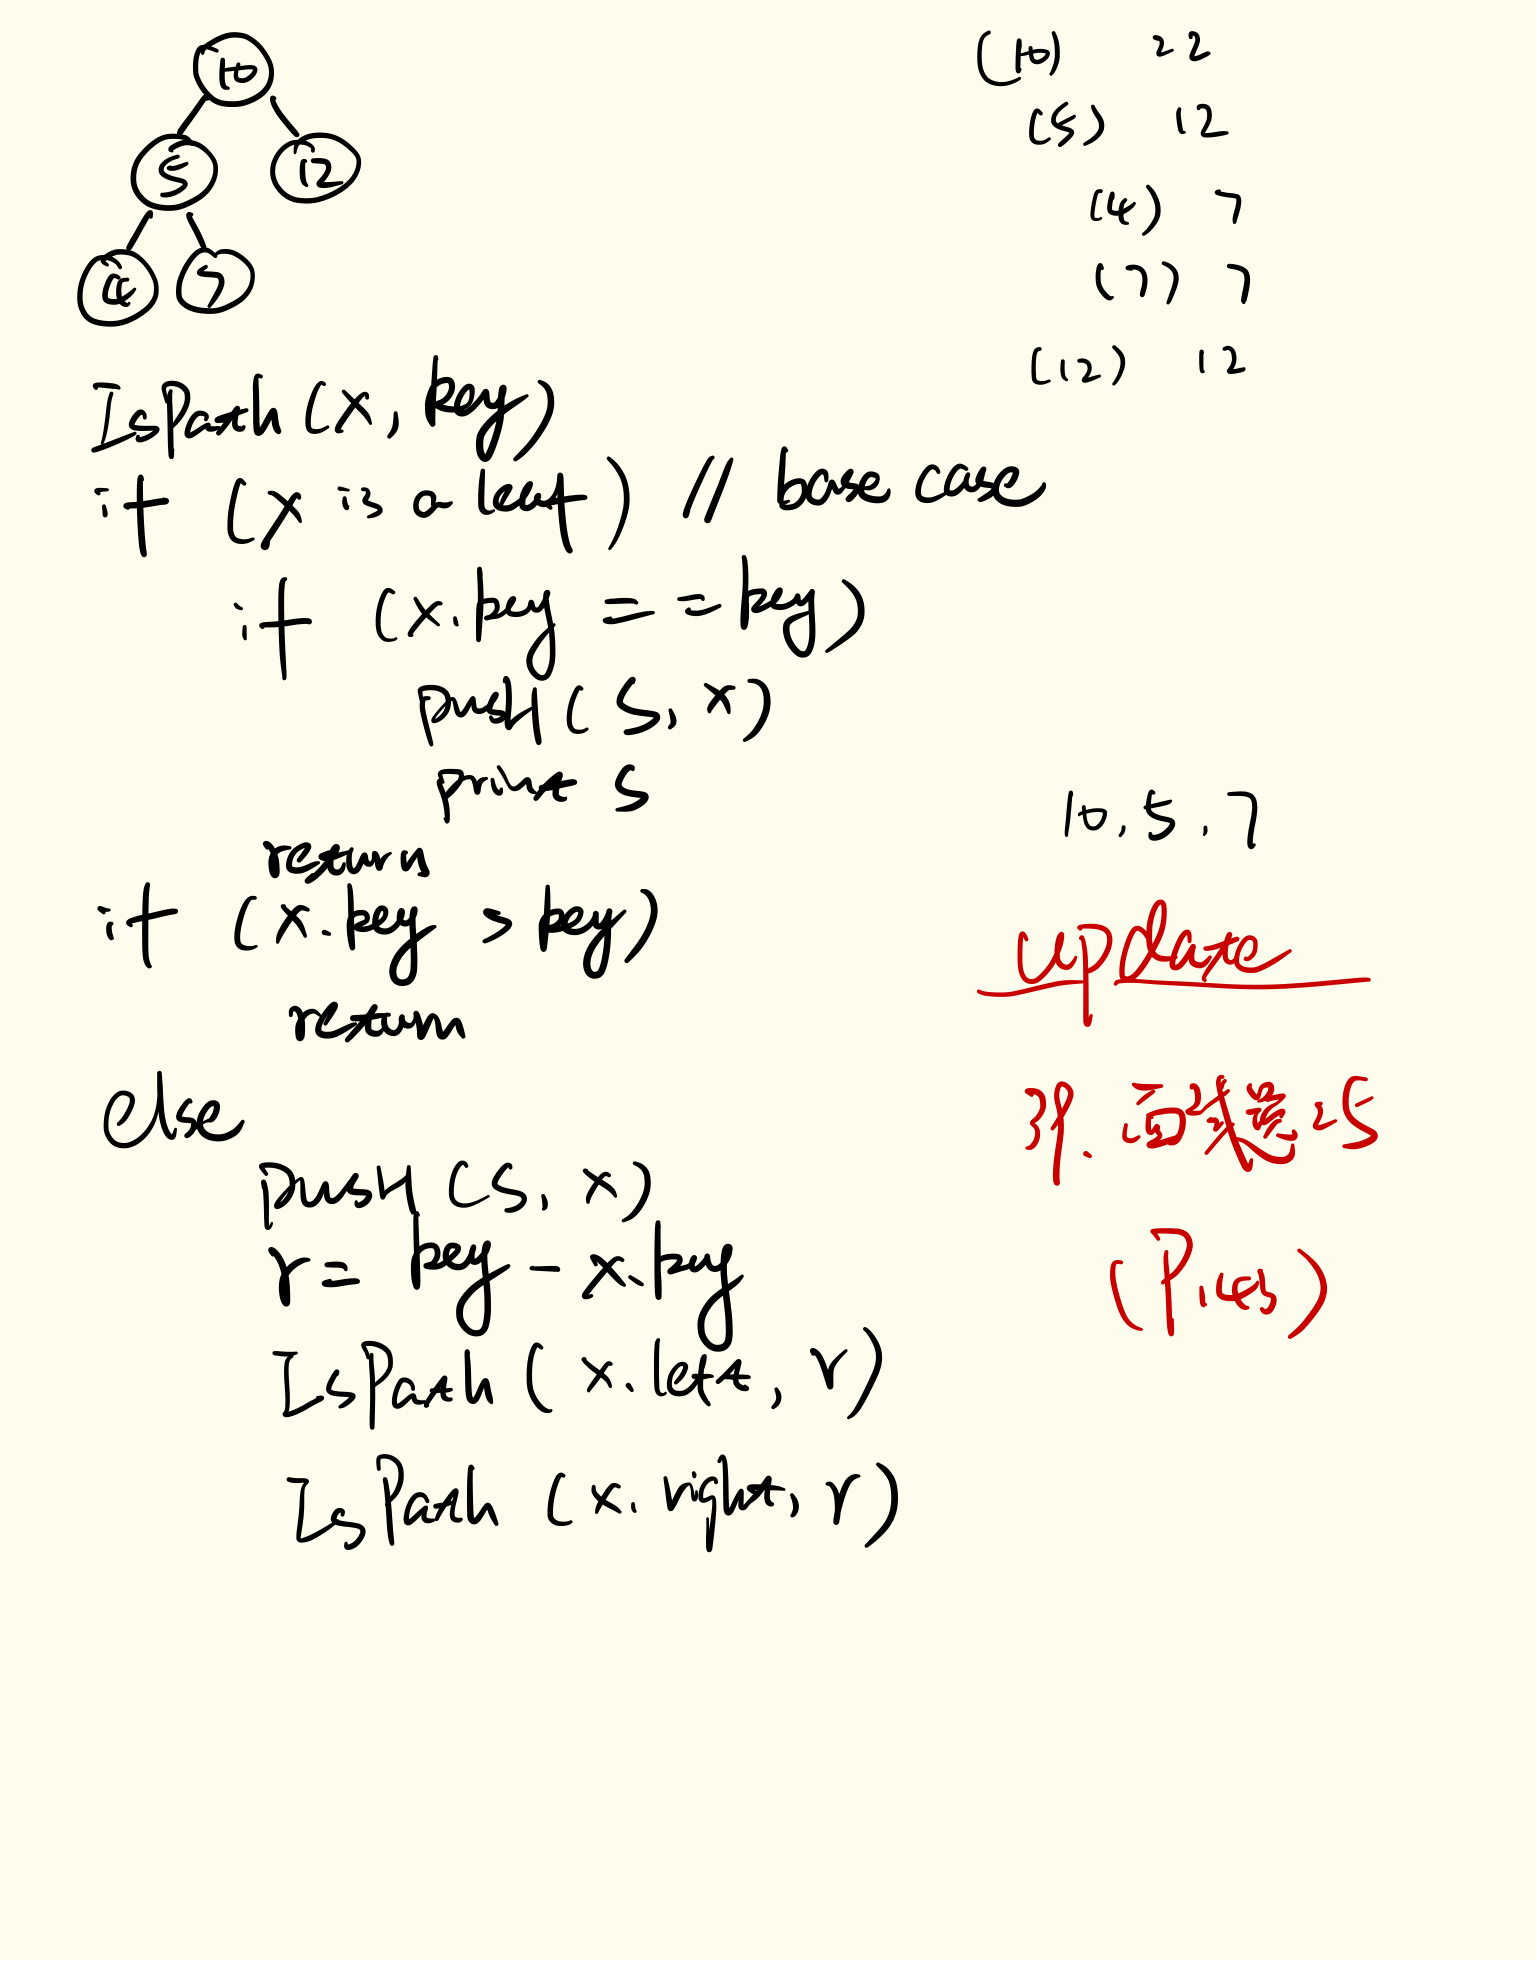 10
5 12
4 7
(10) 22
(5) 12
(4) 7
(7) 7
(12) 12
IsPath (x, key)
if (x is a leaf) // base case
if (x.key == key)
push (S, x)
print S
return
if (x.key > key)
return
else
push (S, x)
r = key - x.key
IsPath (x.left, r)
IsPath (x.right, r)
10, 5, 7
update
P. 面试题25
(P143)